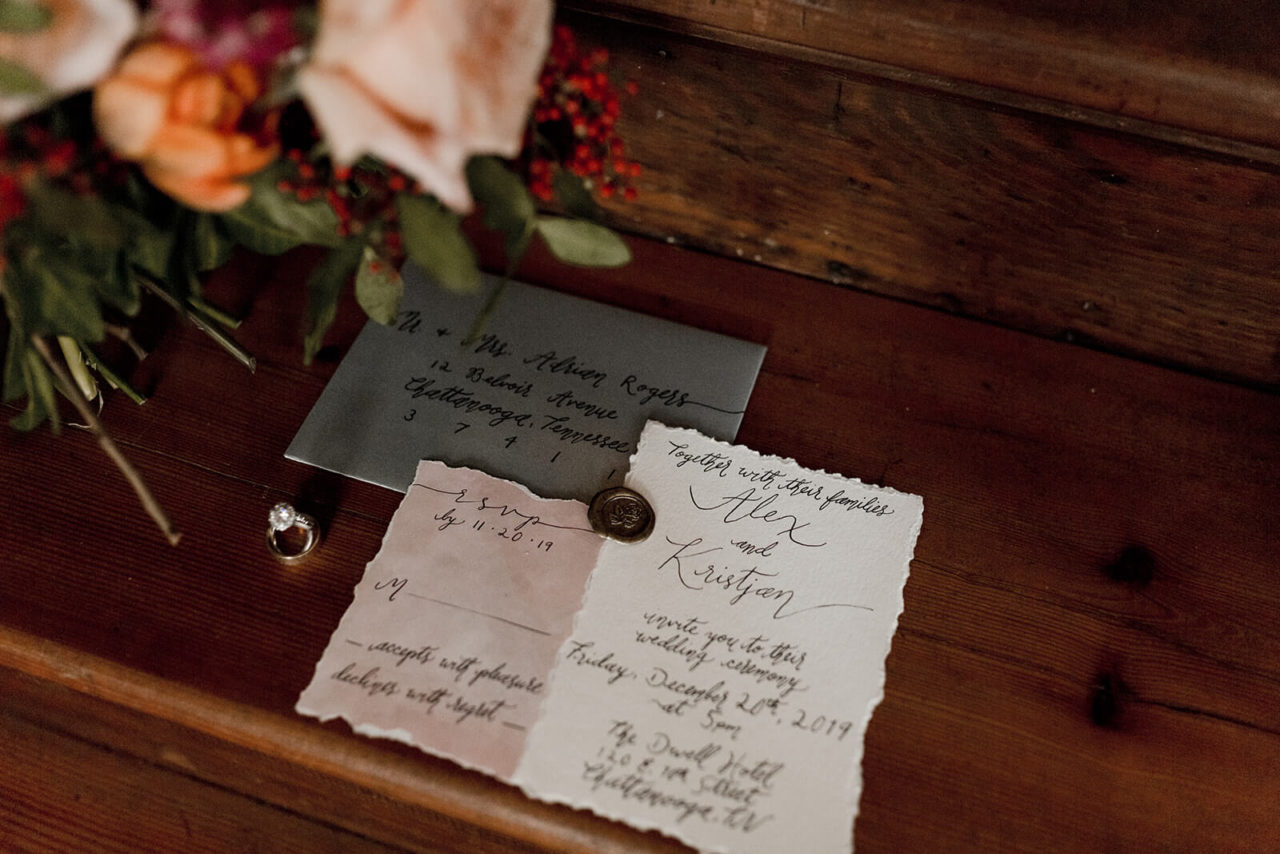 Mr. + Mrs. Adrian Rogers
12 Belvoir Avenue
Chattanooga, Tennessee
3 7 4 1 1
rsvp
by 11.20.19
M
accepts with pleasure
declines with regret
Together with their families
Alex
and
Kristjan
invite you to their
wedding ceremony
Friday, December 20th, 2019
at 5pm
The Dwell Hotel
120 E. 10th Street
Chattanooga, TN